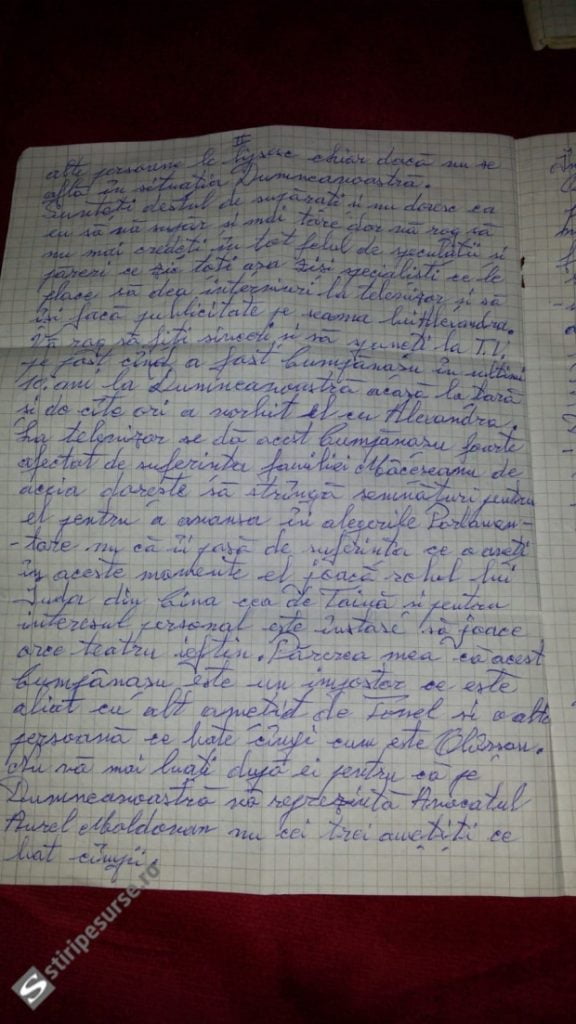 II
alte persoane le lipsesc chiar dacă nu se
află în situația Dumneanoastră.
Sunteți destul de supărați și nu doresc ca
eu să vă supăr și mai tare dar vă rog să
nu mai credeți în tot felul de speculatii si
pareri ce zic toti asa zisi specialisti ce le
place să dea interviuri la televizor și să
își facă publicitate pe seama lui Alexandra.
Vă rog să fiți sinceri și să spuneți la T.V.
pe fast cînd a fost bumbănasu în ultimi
10. ani la Dumneanoastră acasă la țară
si de cîte ori a vorbit el cu Alexandra.
La televizor se dă acest bumbănasu foarte
afectat de suferinta familiei Măceseanu de
aceia doreste să strîngă semnături pentru
el pentru a avansa în alegerile Parlamen-
-tare nu că îi pasă de suferința ce o aveți
în aceste momente el joacă rolul lui
Iuda din Cina cea de Taină si pentru
interesul personal este înstare să joace
orce teatru ieftin. Părerea mea că acest
bumbănasu este un impostor ce este
aliat cu alt ametit de Ionel si o altă
persoană ce bate cîmpi cum este
Nu vă mai luați după ei pentru că pe
Dumneanoastră vă reprezintă Avocatul
Aurel Moldovan nu cei trei ametiți ce
bat cîmpii.
stiripesurse.ro